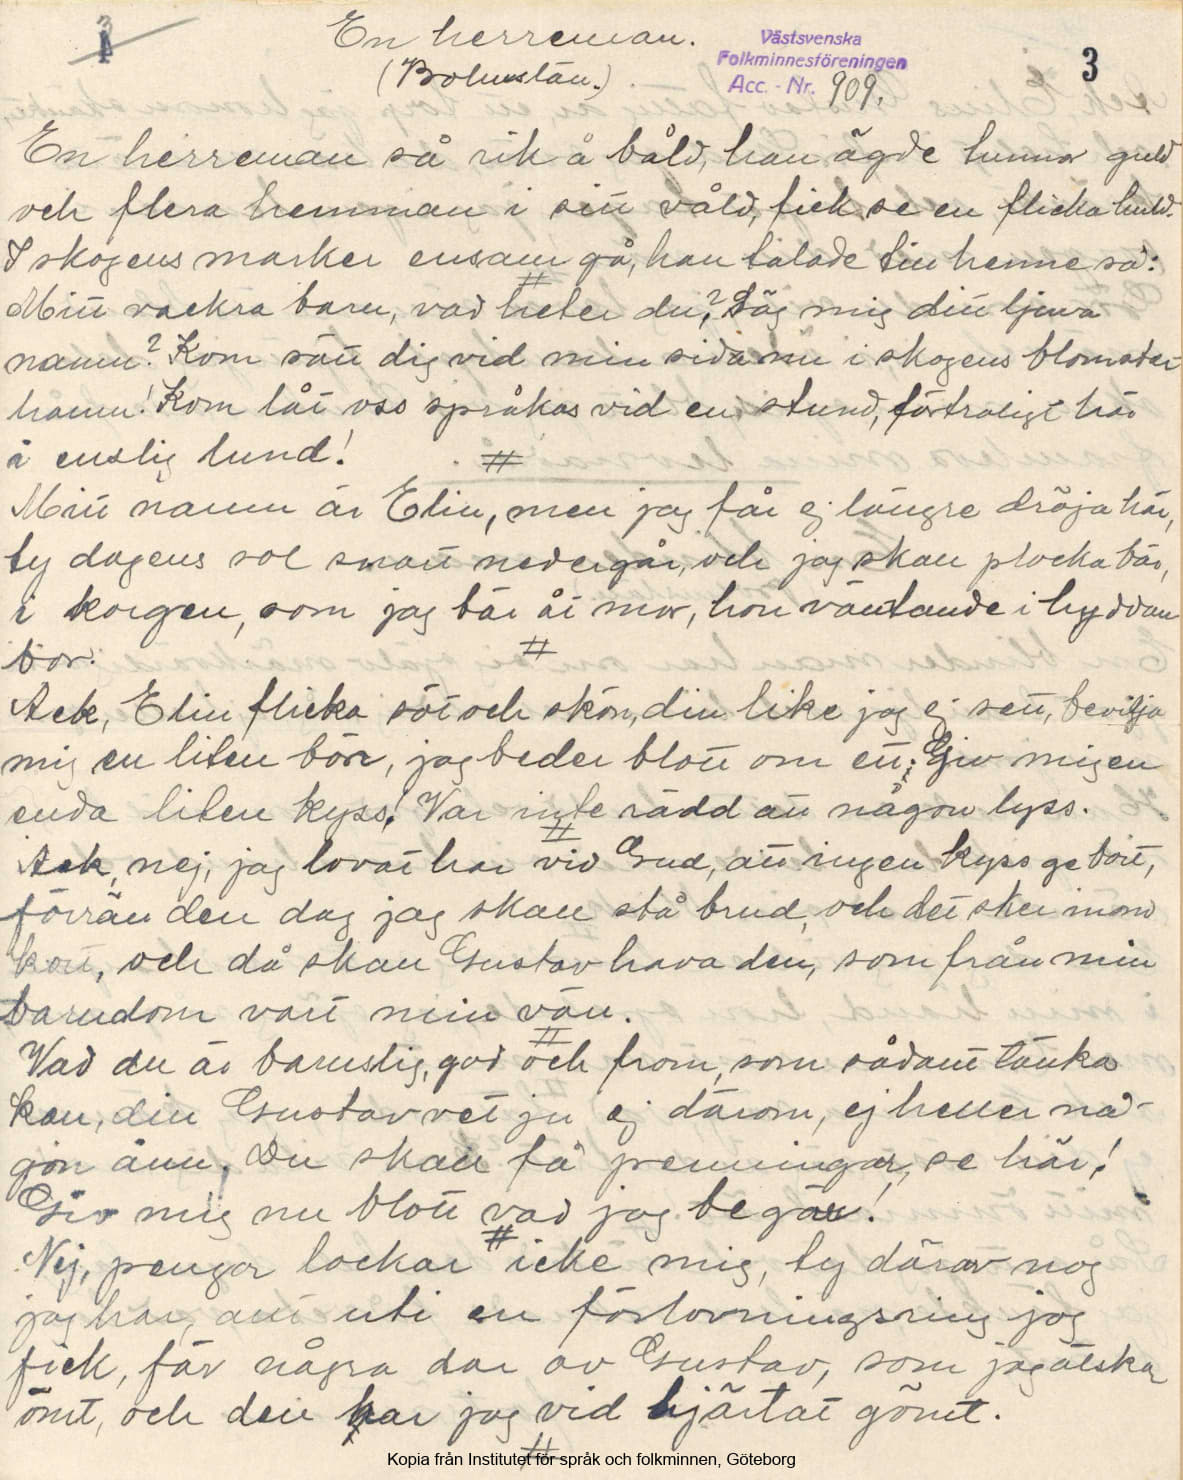 En herreman.
(Bohuslän.)
Västsvenska
Folkminnesföreningen
Acc. - Nr. 909.
3
En herreman så rik å båld, han ägde tunnor guld
och flera hemman i sitt våld, fick se en flicka huld.
I skogens marker ensam gå, han talade till henne så:
#
Mitt vackra barn, vad heter du? Säg mig ditt ljuva
namn? Kom sätt dig vid min sida nu i skogens blomster
hamn! Kom låt oss språkas vid en stund, förtroligt här
i enslig lund!
#
Mitt namn är Elin, men jag får ej längre dröja här,
ty dagens sol snart nedergår, och jag skall plocka bär,
i korgen, som jag bär åt mor, hon väntande i hyddan
bor.
#
Ack, Elin flicka söt och skön, din like jag ej sett, bevilja
mig en liten bön, jag beder blott om ett; Giv mig en
enda liten kyss! Var inte rädd att någon lyss.
#
Ack, nej, jag lovat har vid Gud, att ingen kyss ge bort,
förrän den dag jag skall stå brud, och det sker inom
kort, och då skall Gustav hava den, som från min
barndom vart min vän.
#
Vad du är barnslig, god och from, som sådant tänka
kan, din Gustav vet ju ej därom, ej heller nå-
gon ann. Du skall få penningar, se här!
Giv mig nu blott vad jag begär!
#
Nej, pengar lockar icke mig, ty därav nog
jag har, att uti en förlovningsring jag
fick, för några dar av Gustav, som jag älskar
ömt, och den har jag vid hjärtat gömt.
#
Kopia från Institutet för språk och folkminnen, Göteborg